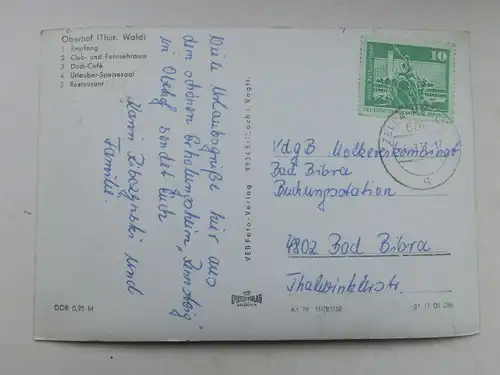 Oberhof (Thür. Wald)
1 Empfang
2 Club- und Fernsehraum
3 Duo-Café
4 Urlauber-Speisesaal
5 Restaurant
Viele Urlaubsgrüße hier aus
dem schönen Erholungsheim „Rennsteig"
in Oberhof sendet Euch
Karin und
Familie.
DDR 0,95 M
VEB Foto-Verlag 9934 Erlbach i. Vogtl.
10
VdgB Molkereikombinat
Bad Bibra
Buchungsstation
4802 Bad Bibra
Thalwinklerstr.
01 11 01